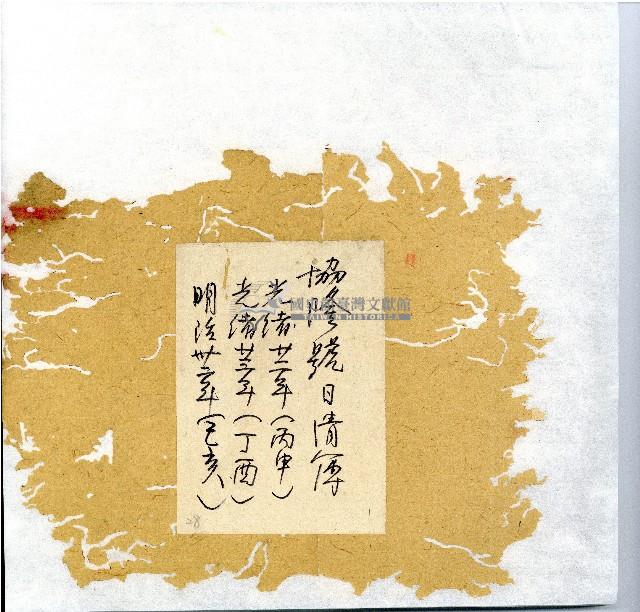 協隆號日清簿
光緒廿二年(丙申)
光緒廿三年(丁酉)
明治卅二年(己亥)
國史館臺灣文獻館
TAIWAN HISTORICA
28